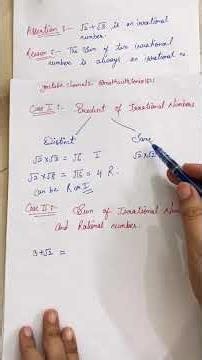 Assertion :- √2 + √3 is an irrational
number.
Reason :- The Sum of two irrational
number is always an irrational no.
Case I :- Product of Irrational Numbers
Distinct Same
√2 × √3 = √6 I √2 × √2
√2 × √8 = √16 = 4 R.
Can be R or I
Case II :- Sum of Irrational
and Rational number.
3 + √2 =